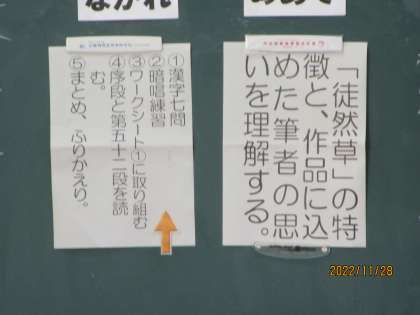 「徒然草」の特
徴と、作品に込
めた筆者の思
いを理解する。
ながれ
①漢字七問
②暗唱練習
③ワークシート①に取り組む
④序段と第五十二段を読
む。
⑤まとめ、ふりかえり。
2022/11/28